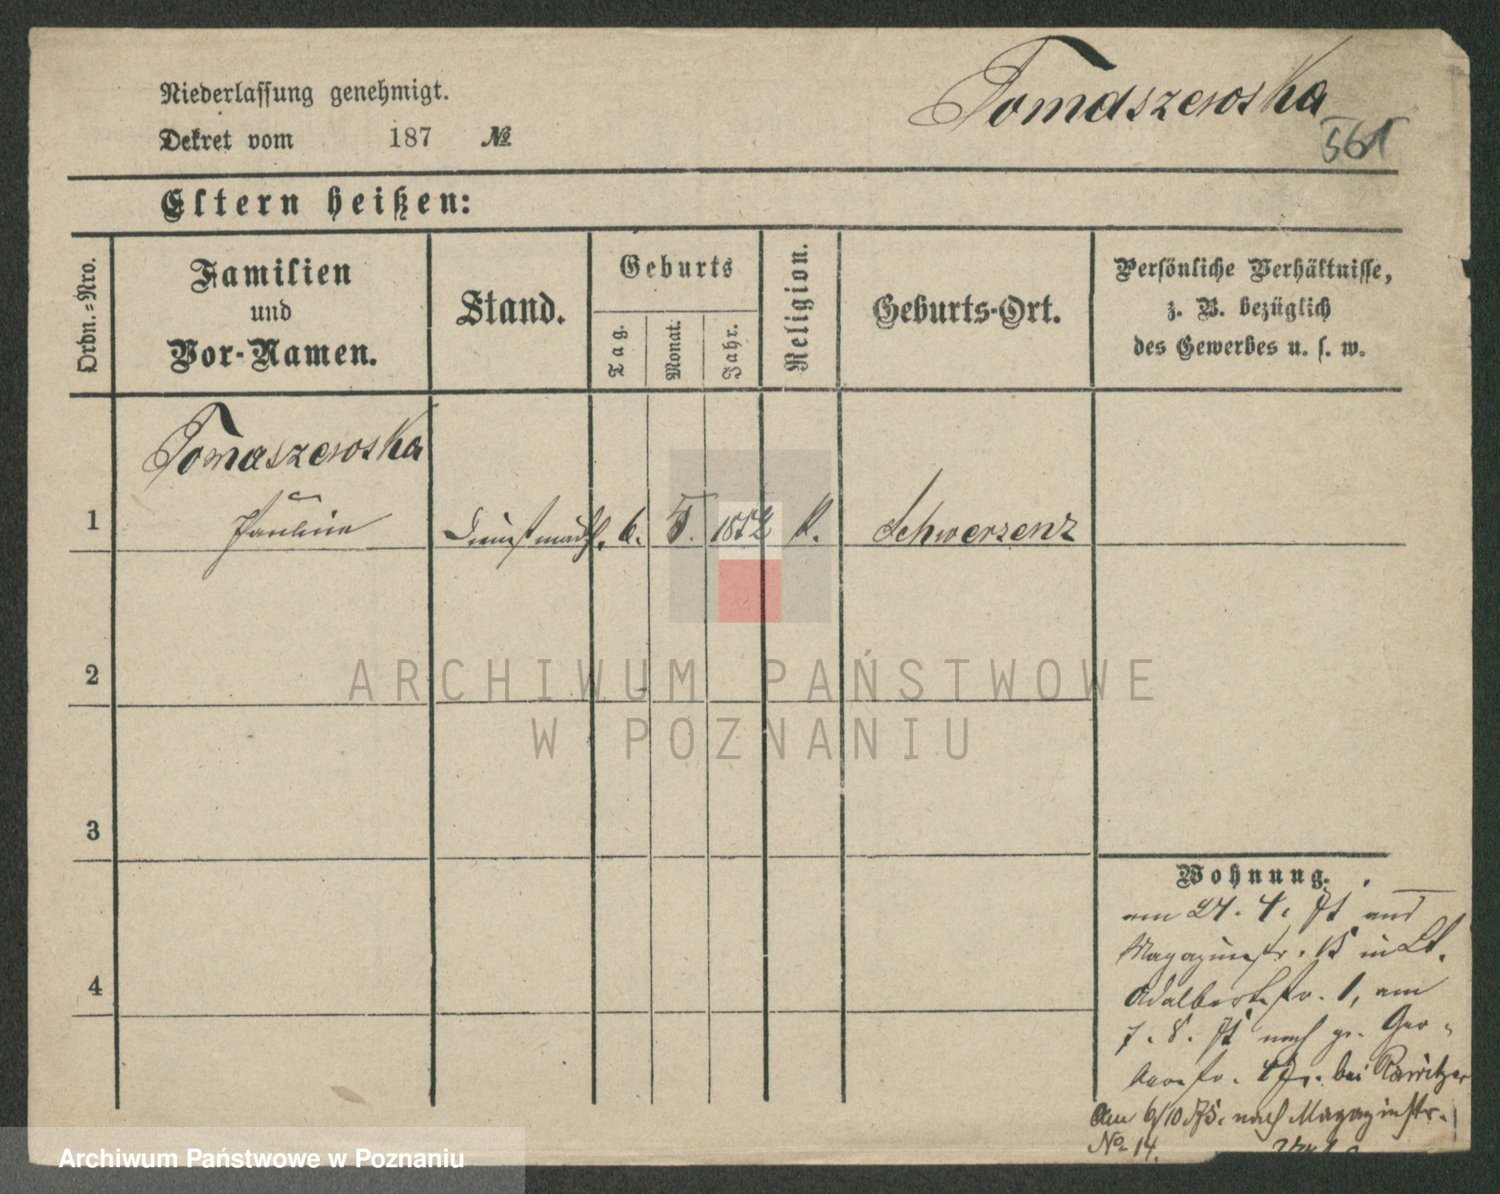 Niederlassung genehmigt.
Dekret vom 187 №
Tomaszewska
561
Eltern heißen:
Ordn.-Nro.
Familien
und
Vor-Namen.
Stand.
Geburts
Tag.
Monat.
Jahr.
Religion.
Geburts-Ort.
Persönliche Verhältnisse,
z. B. bezüglich
des Gewerbes u. s. w.
Tomaszewska
1 Pauline Dienstmädch. 6. 5. 1852 k. Schwersenz
2
3
4
Wohnung.
am 24. 4. 75 aus
Magazinstr. 15 in St.
Adalbertstr. 1, am
7. 8. 75 nach gr. Ger-
berstr. bei Rawitzer
Am 6/10 75. nach Magazinstr.
No 14.
ARCHIWUM PAŃSTWOWE
W POZNANIU
Archiwum Państwowe w Poznaniu